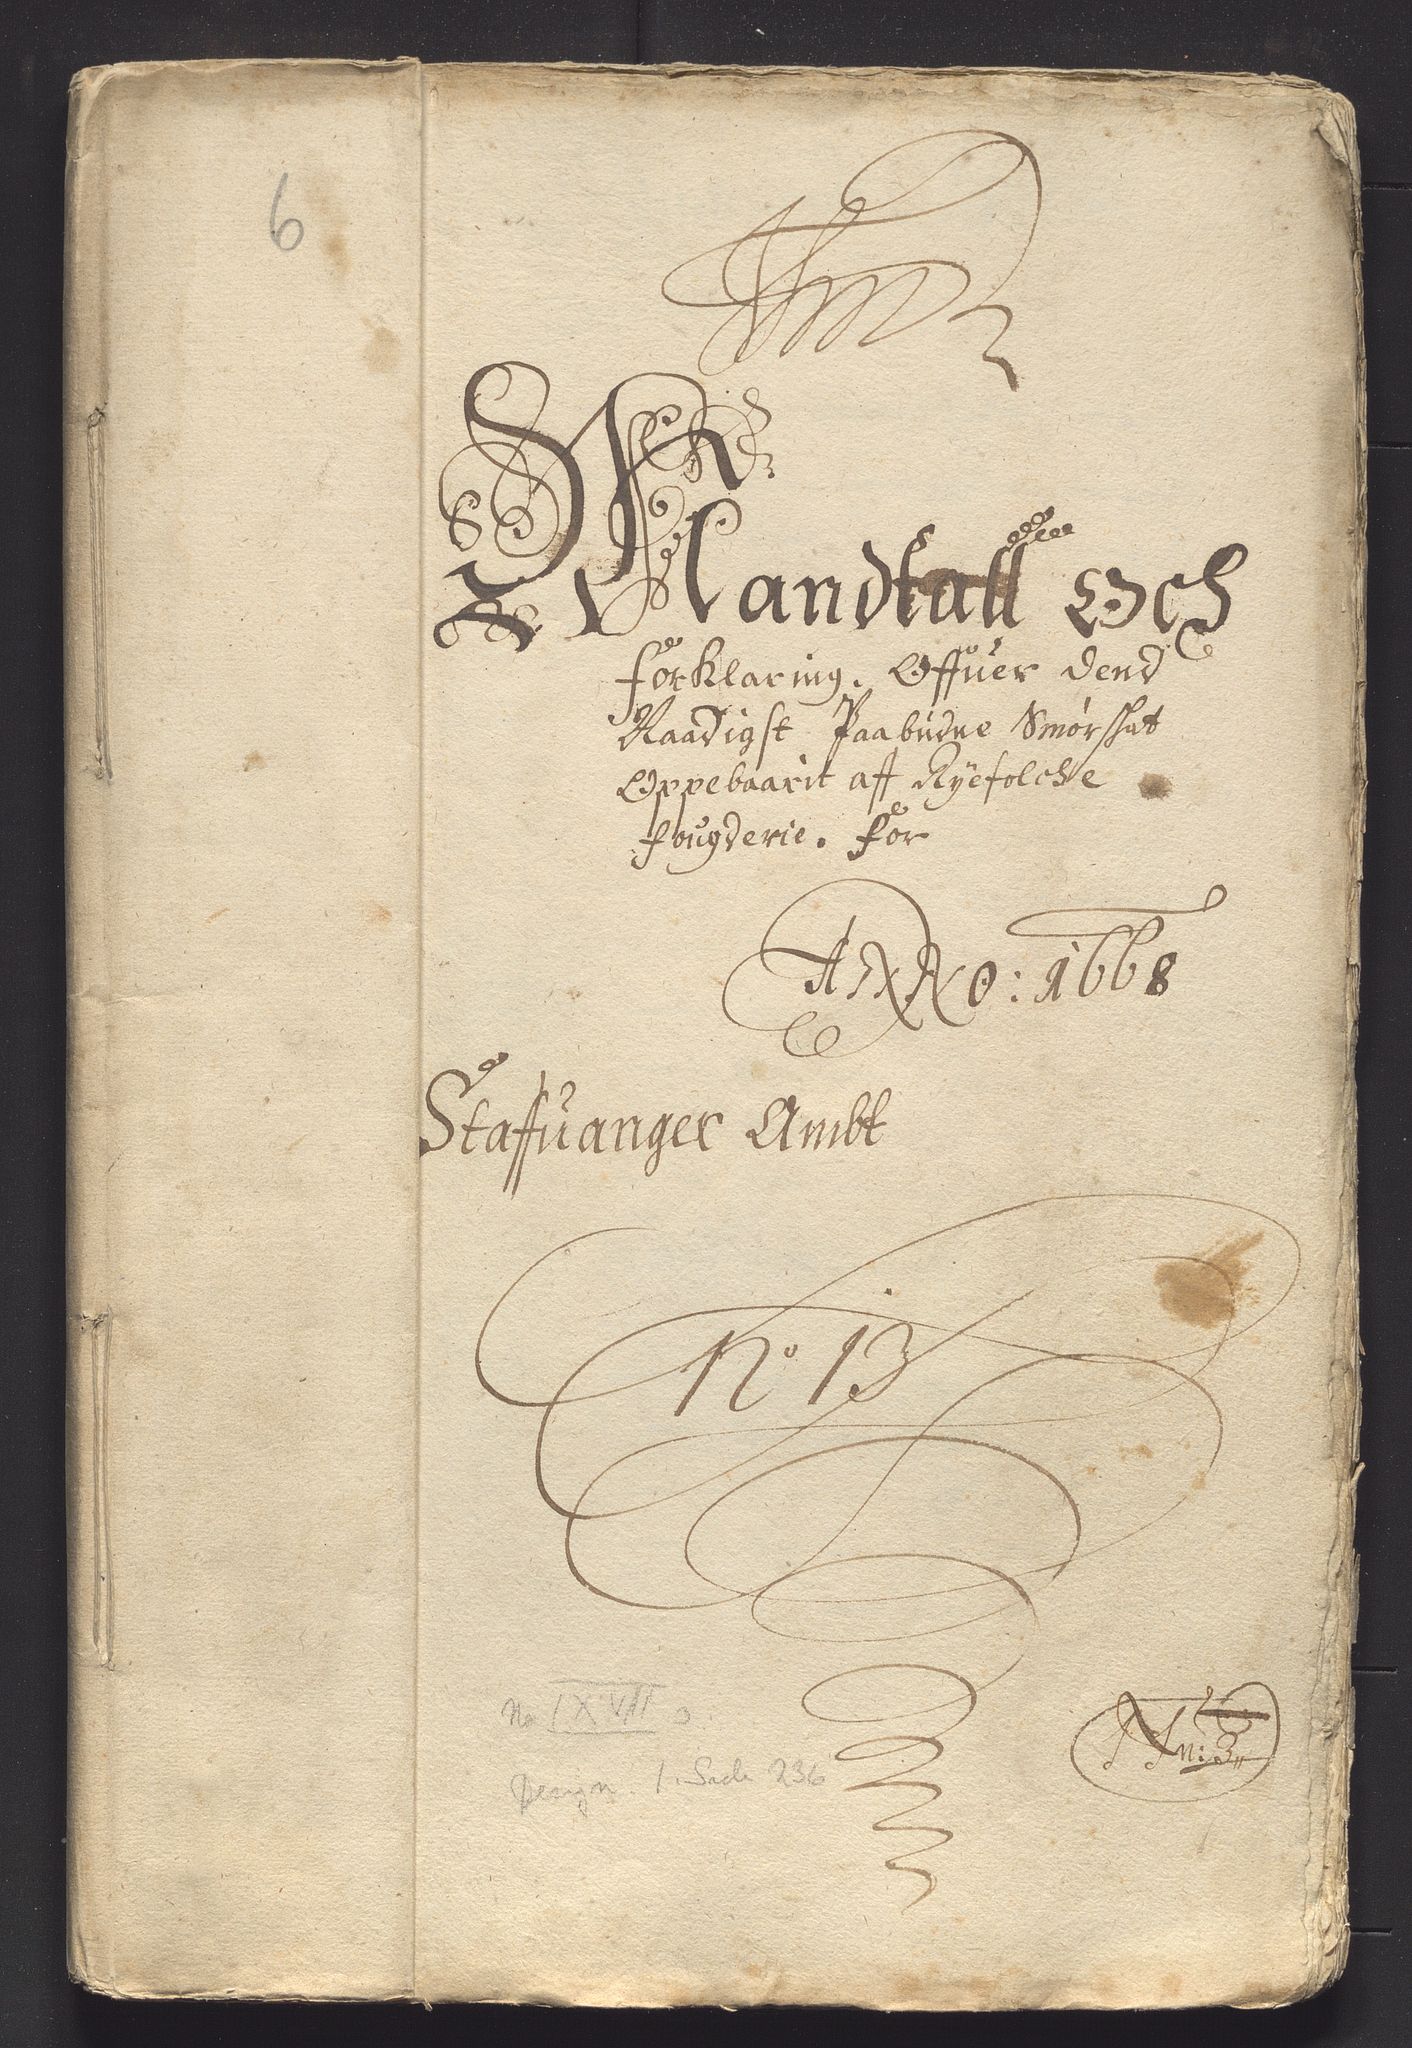 6
Mandtall Och
forklaring. Offuer dend
Naadigst Paabudne Smørshat
Oppebaarit aff Ryefolche
fougderie. For
ANNO: 1668
Staffuanger Ambt
No 13
No LXVII
Design. 1. Sack 236